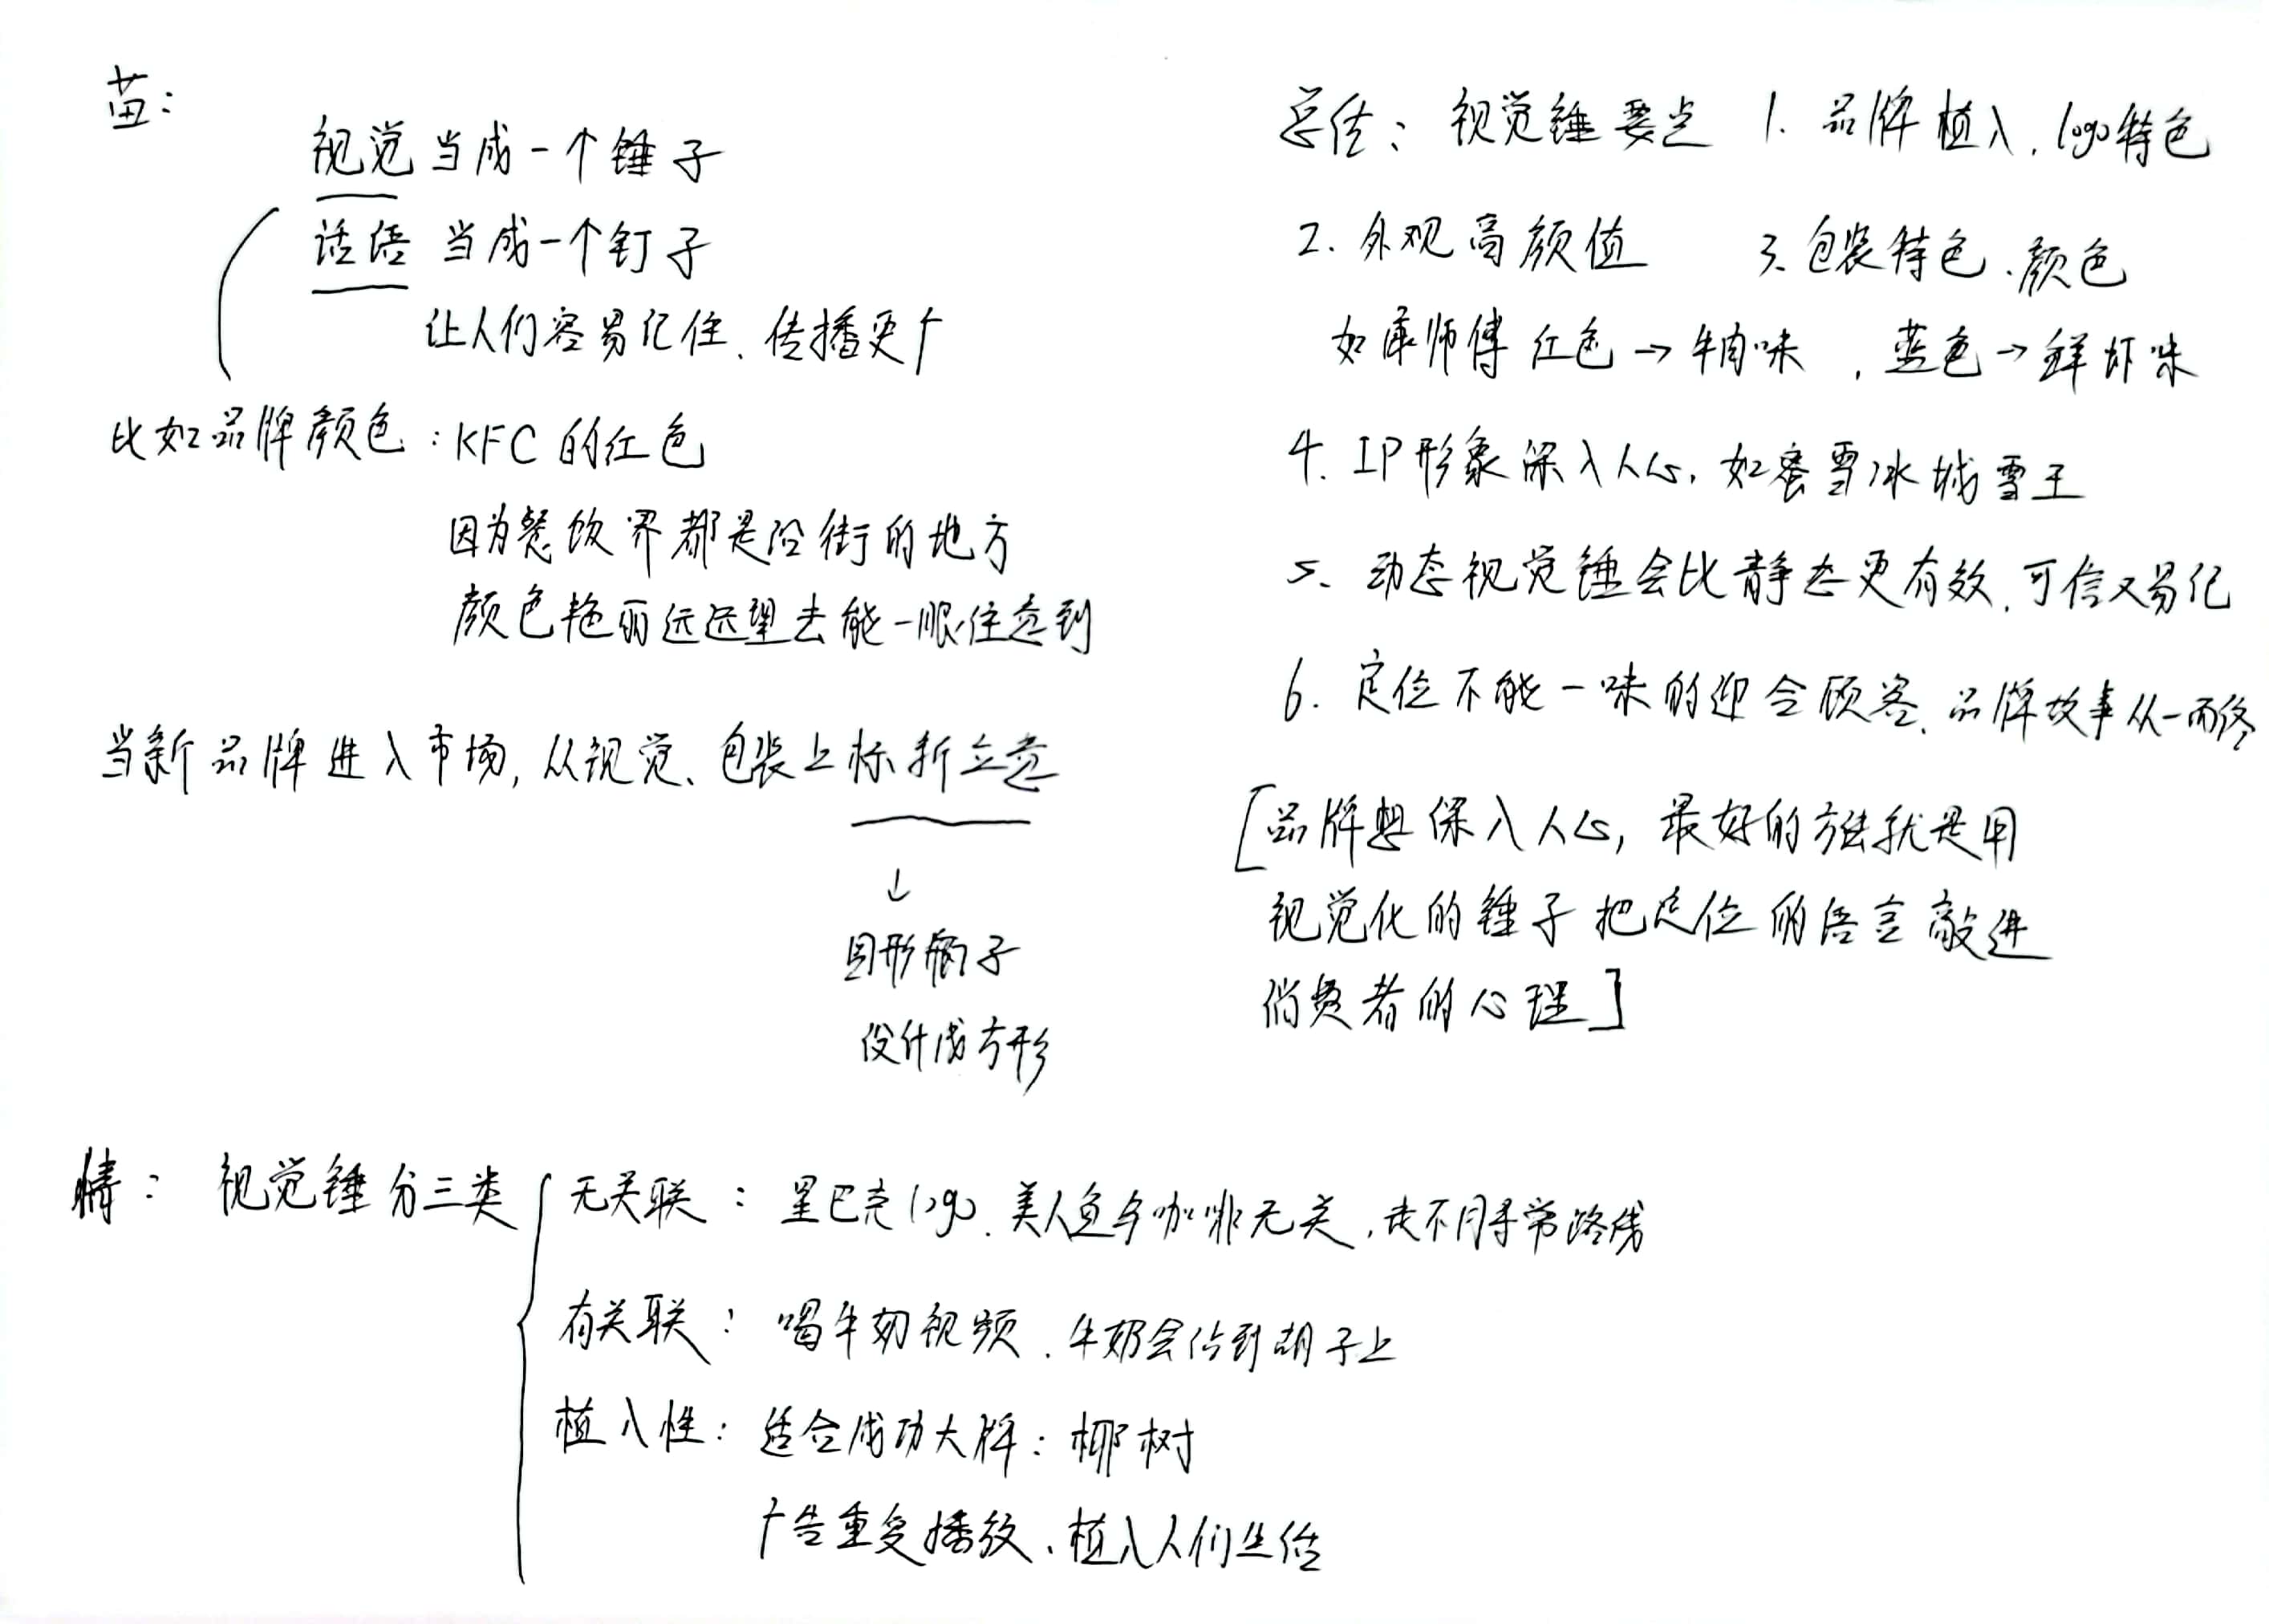 苗：
视觉当成一个锤子
话语 当成一个钉子
让人们容易记住、传播更广
比如品牌颜色：KFC的红色
因为餐饮界都是沿街的地方
颜色艳丽远远望去能一眼注意到
当新品牌进入市场，从视觉、包装上标新立意
↓
圆形瓶子
设计成方形
总结：视觉锤要点 1. 品牌植入、logo特色
2. 外观高颜值 3、包装特色、颜色
如康师傅 红色→牛肉味，蓝色→鲜虾味
4. IP形象深入人心，如蜜雪冰城雪王
5、动态视觉锤会比静态更有效、可信又易记
6. 定位不能一味的迎合顾客、品牌故事从一而终
[品牌想深入人心，最好的方法就是用
视觉化的锤子把定位的语言敲进
消费者的心理]
情： 视觉锤分三类
无关联：星巴克logo、美人鱼与咖啡无关，走不同寻常路线
有关联：喝牛奶视频、牛奶会沾到胡子上
植入性：适合成功大牌：椰树
广告重复播放、植入人们生活